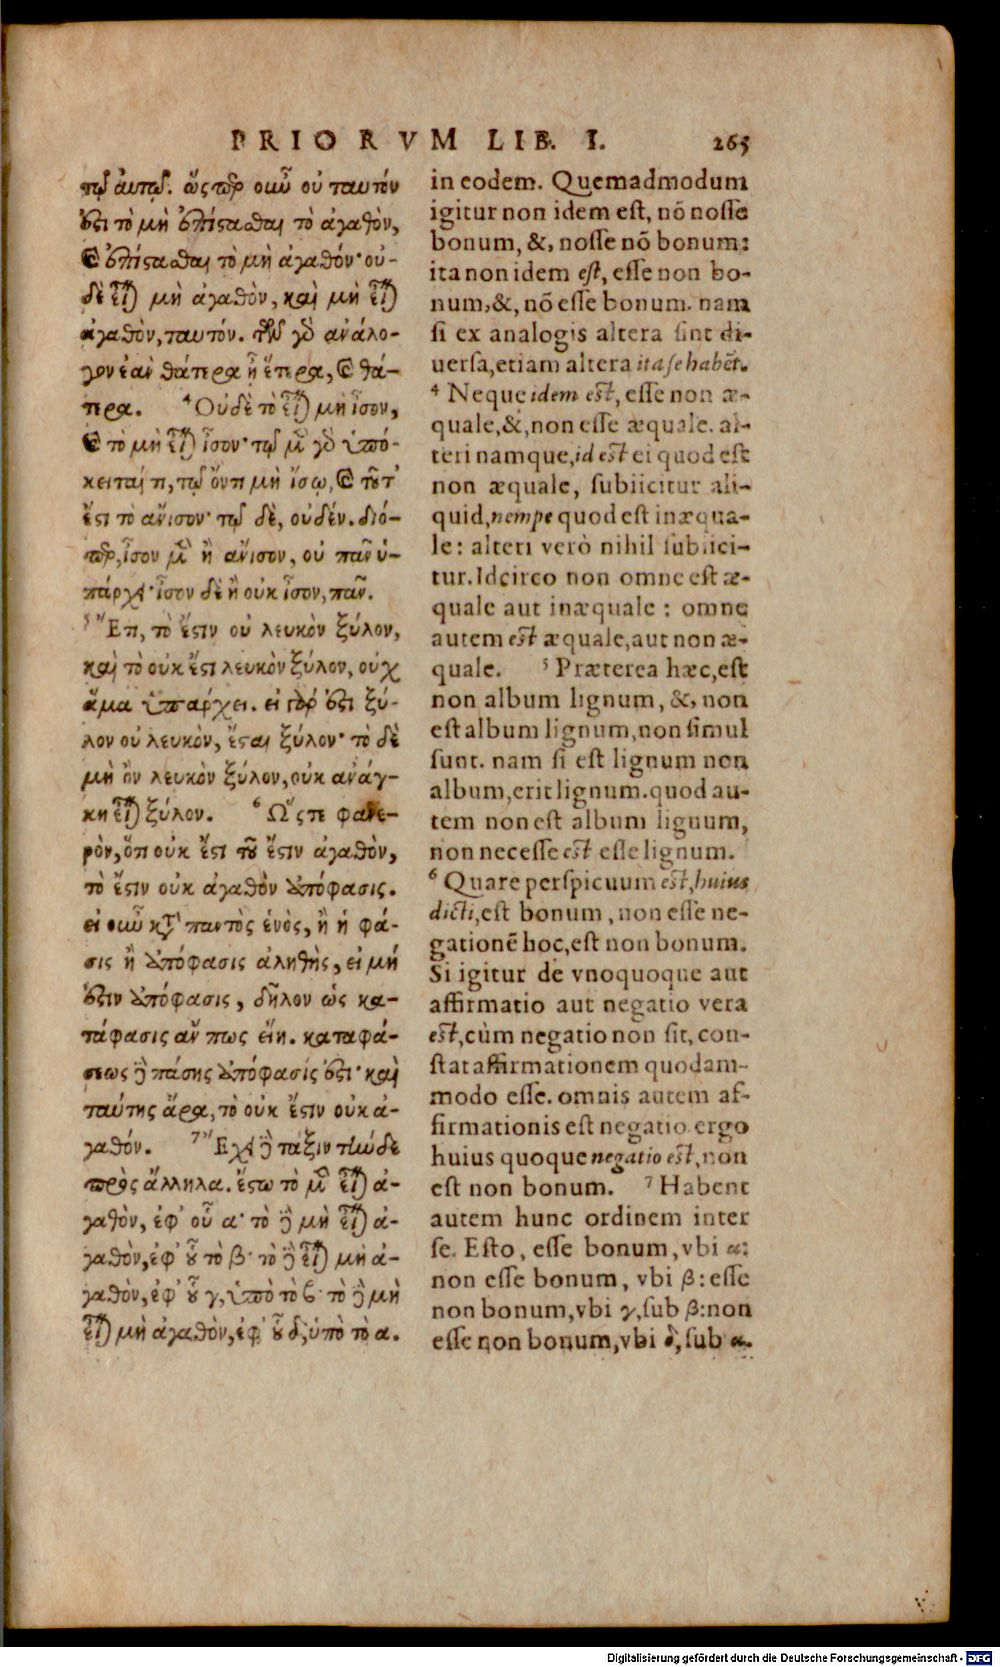 PRIORVM LIB. I. 265
τῷ αὐτῷ. ὥσπερ οὖν οὐ ταυτόν
ἐστι τὸ μὴ ἐπίστασθαι τὸ ἀγαθὸν,
καὶ ἐπίστασθαι τὸ μὴ ἀγαθόν· οὐ-
δὲ εἶναι μὴ ἀγαθὸν, καὶ μὴ εἶναι
ἀγαθὸν, ταυτόν. τῶν γὸ ἀνάλο-
γον ἐὰν θάτερα ᾖ ἕτερα, καὶ θά-
τερα. ⁴ Οὐδὲ τὸ εἶναι μὴ ἶσον,
καὶ τὸ μὴ εἶναι ἶσον· τῷ μὲν γὸ ὑπό-
κειταί τι, τῷ ὄντι μὴ ἴσῳ, καὶ τοῦτ'
ἔστι τὸ ἄνισον· τῷ δὲ, οὐδέν. διό-
περ, ἶσον μὲν ἢ ἄνισον, οὐ πᾶν ὑ-
πάρχει· ἶσον δὲ ἢ οὐκ ἶσον, πᾶν.
⁵ Ἔτι, τὸ ἔστιν οὐ λευκὸν ξύλον,
καὶ τὸ οὐκ ἔστι λευκὸν ξύλον, οὐχ
ἅμα ὑπάρχει. εἰ γάρ ἐστι ξύ-
λον οὐ λευκὸν, ἔσται ξύλον· τὸ δὲ
μὴ ὂν λευκὸν ξύλον, οὐκ ἀνάγ-
κη εἶναι ξύλον. ⁶ Ὥστε φανε-
ρὸν, ὅτι οὐκ ἔστι τοῦ ἔστιν ἀγαθὸν,
τὸ ἔστιν οὐκ ἀγαθὸν ἀπόφασις.
εἰ οὖν κατὰ παντὸς ἑνὸς, ἢ ἡ φά-
σις ἢ ἀπόφασις ἀληθὴς, εἰ μή
ἐστιν ἀπόφασις, δῆλον ὡς κα-
τάφασις ἄν πως εἴη. καταφά-
σεως δὲ πάσης ἀπόφασίς ἐστι· καὶ
ταύτης ἄρα, τὸ οὐκ ἔστιν οὐκ ἀ-
γαθόν. ⁷ Ἔχει δὲ τάξιν τήνδε
πρὸς ἄλληλα. ἔστω τὸ μὲν εἶναι ἀ-
γαθὸν, ἐφ' οὗ α· τὸ δὲ μὴ εἶναι ἀ-
γαθὸν, ἐφ' οὗ τὸ β· τὸ δὲ εἶναι μὴ ἀ-
γαθὸν, ἐφ' οὗ γ, ὑπὸ τὸ ϐ· τὸ δὲ μὴ
εἶναι μὴ ἀγαθὸν, ἐφ' οὗ δ, ὑπὸ τὸ α.
in eodem. Quemadmodum
igitur non idem est, nō nosse
bonum, &, nosse nō bonum:
ita non idem est, esse non bo-
num, &, nō esse bonum. nam
si ex analogis altera sint di-
uersa, etiam altera ita se habēt.
⁴ Neque idem est, esse non æ-
quale, &, non esse æquale. al-
teri namque, id est ei quod est
non æquale, subiicitur ali-
quid, nempe quod est inæqua-
le: alteri verò nihil subiici-
tur. Idcirco non omne est æ-
quale aut inæquale : omne
autem est æquale, aut non æ-
quale. ⁵ Præterea hæc, est
non album lignum, &, non
est album lignum, non simul
sunt. nam si est lignum non
album, erit lignum. quod au-
tem non est album lignum,
non necesse est esse lignum.
⁶ Quare perspicuum est, huius
dicti, est bonum, non esse ne-
gationē hoc, est non bonum.
Si igitur de vnoquoque aut
affirmatio aut negatio vera
est, cùm negatio non sit, con-
stat affirmationem quodam-
modo esse. omnis autem af-
firmationis est negatio. ergo
huius quoque negatio est, non
est non bonum. ⁷ Habent
autem hunc ordinem inter
se. Esto, esse bonum, vbi α:
non esse bonum, vbi β: esse
non bonum, vbi γ, sub β: non
esse non bonum, vbi δ, sub α.
Digitalisierung gefördert durch die Deutsche Forschungsgemeinschaft - DFG